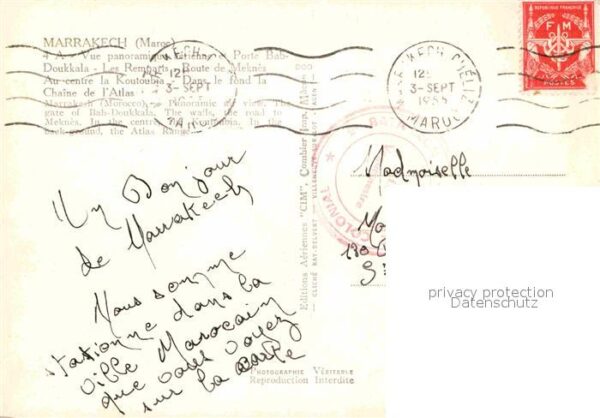 MARRAKECH (Maroc)
4 A - Vue panoramique aérienne et Porte Bab-
Doukkala - Les Remparts - Route de Meknès
Au centre la Koutoubia - Dans le fond la
Chaîne de l'Atlas
Marrakech (Morocco) - Panoramic air view. The
gate of Bab-Doukkala. The walls, the road to
Meknès. In the centre, the Koutoubia. In the
back-ground, the Atlas Range.
Un Bonjour
de Marrakech
Nous somme
stationne dans la
ville Marocain
que vous voyez
sur la carte
Editions Aériennes "CIM", Combier Imp. Mâcon
CLICHÉ RAY-DELVERT - VILLENEUVE-SUR-LOT
PHOTOGRAPHIE VÉRITABLE
Reproduction Interdite
12
3-SEPT
MAROC
MARRAKECH GUÉLIZ
3-SEPT
MAROC
REPUBLIQUE FRANÇAISE
F M
POSTES
COLONIAL
Madmoiselle
privacy protection
Datenschutz